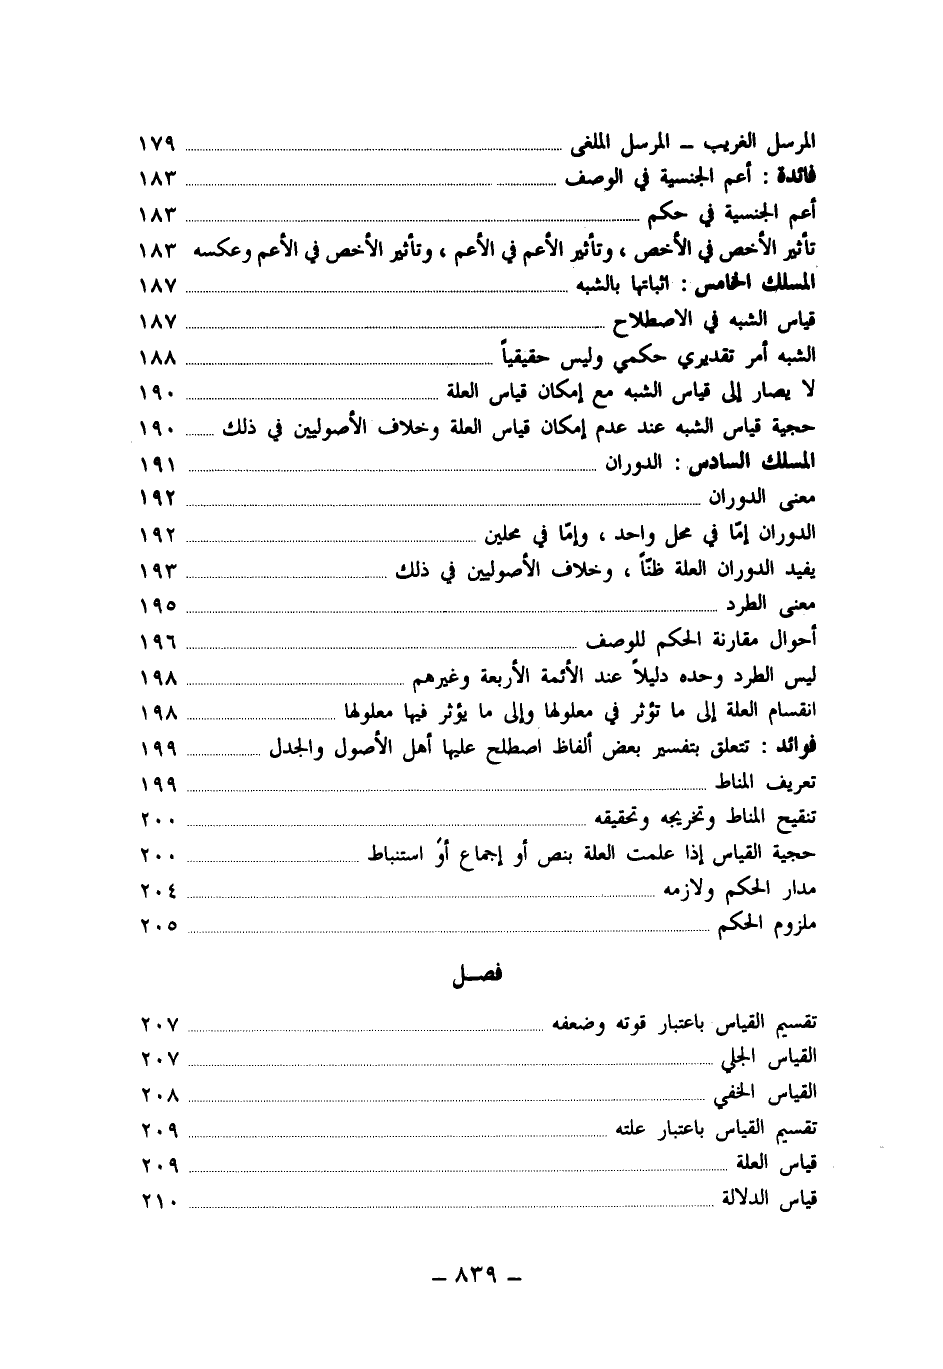 المرسل الغريب – المرسل الملغى ........ ١٧٩
فائدة : أعم الجنسية في الوصف ........ ١٨٣
أعم الجنسية في حكم ........ ١٨٣
تأثير الأخص في الأخص ، وتأثير الأعم في الأعم ، وتأثير الأخص في الأعم وعكسه ١٨٣
المسلك الخامس : اثباتها بالشبه ........ ١٨٧
قياس الشبه في الاصطلاح ........ ١٨٧
الشبه أمر تقديري حكمي وليس حقيقياً ........ ١٨٨
لا يصار إلى قياس الشبه مع إمكان قياس العلة ........ ١٩٠
حجية قياس الشبه عند عدم إمكان قياس العلة وخلاف الأصوليين في ذلك ........ ١٩٠
المسلك السادس : الدوران ........ ١٩١
معنى الدوران ........ ١٩٢
الدوران إمّا في محل واحد ، وإمّا في محلين ........ ١٩٢
يفيد الدوران العلة ظنّاً ، وخلاف الأصوليين في ذلك ........ ١٩٣
معنى الطرد ........ ١٩٥
أحوال مقارنة الحكم للوصف ........ ١٩٦
ليس الطرد وحده دليلاً عند الأئمة الأربعة وغيرهم ........ ١٩٨
انقسام العلة إلى ما تؤثر في معلولها وإلى ما يؤثر فيها معلولها ........ ١٩٨
فوائد : تتعلق بتفسير بعض ألفاظ اصطلح عليها أهل الأصول والجدل ........ ١٩٩
تعريف المناط ........ ١٩٩
تنقيح المناط وتخريجه وتحقيقه ........ ٢٠٠
حجية القياس إذا علمت العلة بنص أو إجماع أو استنباط ........ ٢٠٠
مدار الحكم ولازمه ........ ٢٠٤
ملزوم الحكم ........ ٢٠٥
فصـل
تقسيم القياس باعتبار قوته وضعفه ........ ٢٠٧
القياس الجلي ........ ٢٠٧
القياس الخفي ........ ٢٠٨
تقسيم القياس باعتبار علته ........ ٢٠٩
قياس العلة ........ ٢٠٩
قياس الدلالة ........ ٢١٠
– ٨٣٩ –